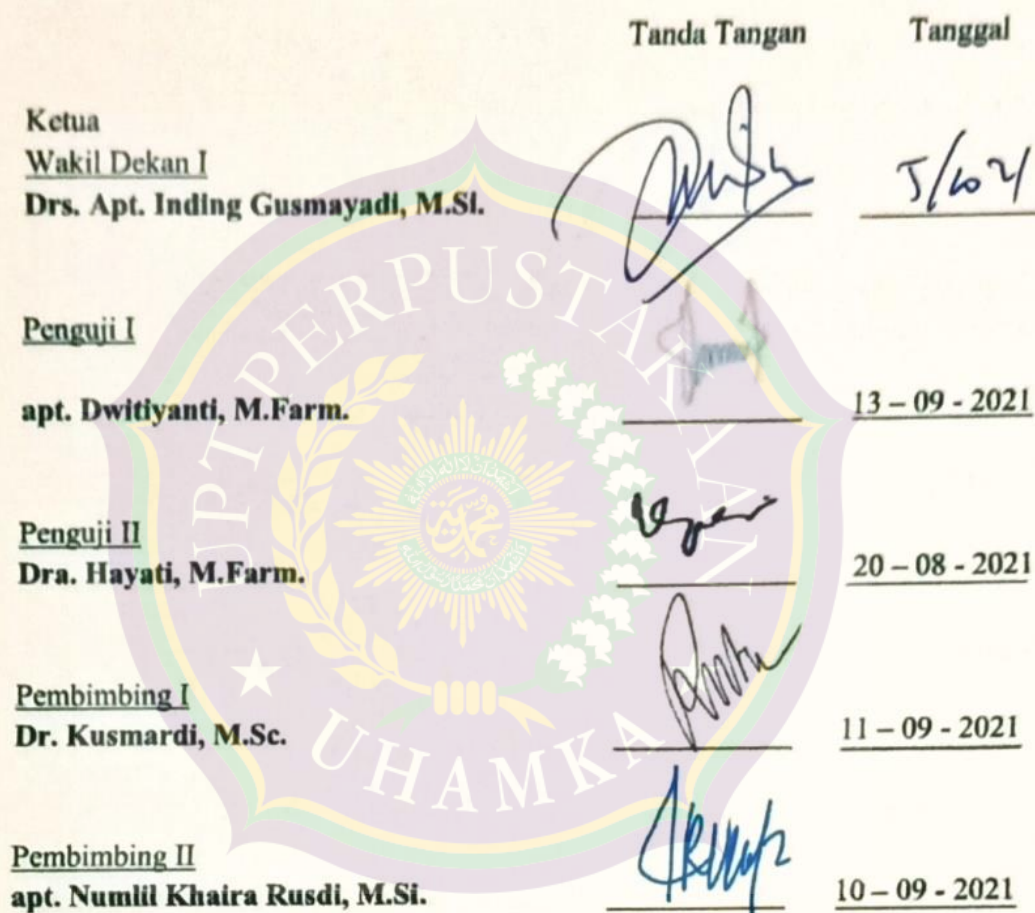 Tanda Tangan Tanggal
Ketua
Wakil Dekan I
Drs. Apt. Inding Gusmayadi, M.Si.
Penguji I
apt. Dwitiyanti, M.Farm. 13 – 09 - 2021
Penguji II
Dra. Hayati, M.Farm. 20 – 08 - 2021
Pembimbing I
Dr. Kusmardi, M.Sc. 11 – 09 - 2021
Pembimbing II
apt. Numlil Khaira Rusdi, M.Si. 10 – 09 - 2021
UPT PERPUSTAKAAN
UHAMKA